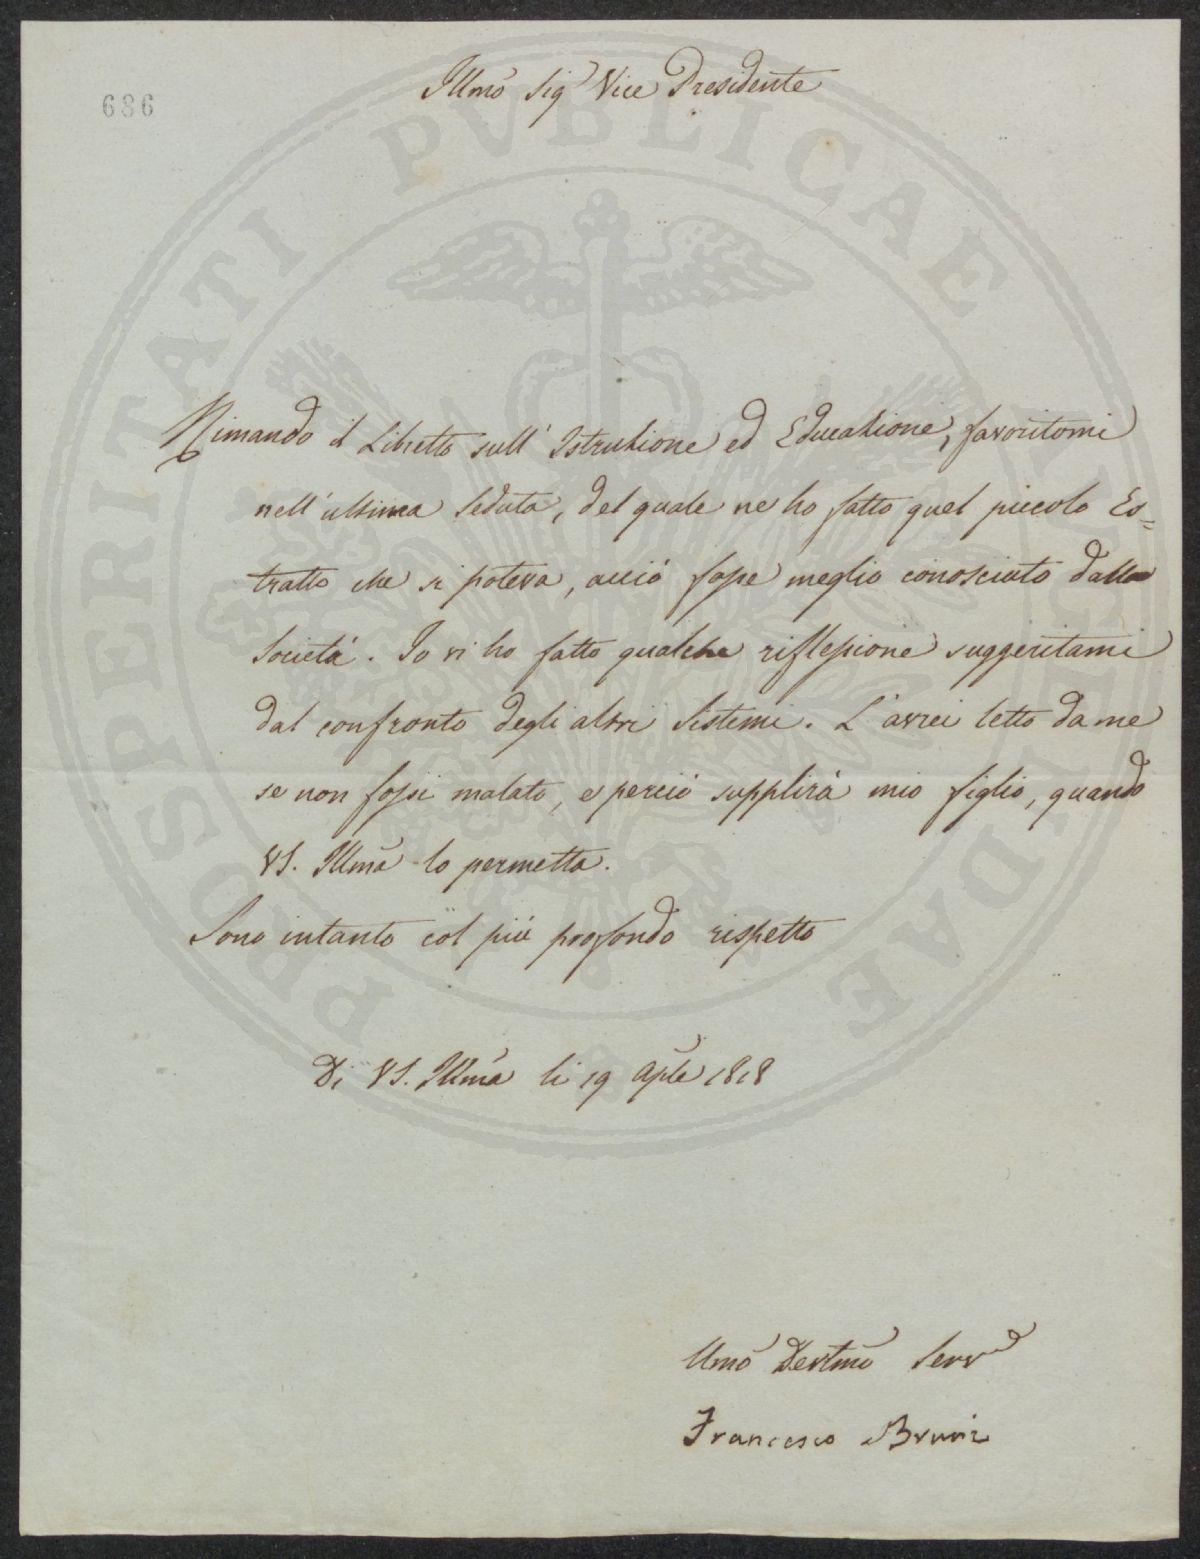 686
Illmo Sig Vice Presidente
Rimando il Libretto sull' Istruzione ed Educazione, favoritomi
nell'ultima Seduta, del quale ne ho fatto quel piccolo Es=
tratto che si poteva, acciò fosse meglio conosciuto dalla
Società. Io vi ho fatto qualche riflessione suggeritami
dal confronto degli altri Sistemi. L'avrei letto da me
se non fossi malato, e perciò supplirà mio figlio, quando
VS. Illma lo permetta.
Sono intanto col più profondo rispetto
Di VS. Illma li 19 Aple 1818
Umo Devtmo Serv
Francesco Bruni
PROSPERITATI PVBLICAE AVGENDAE